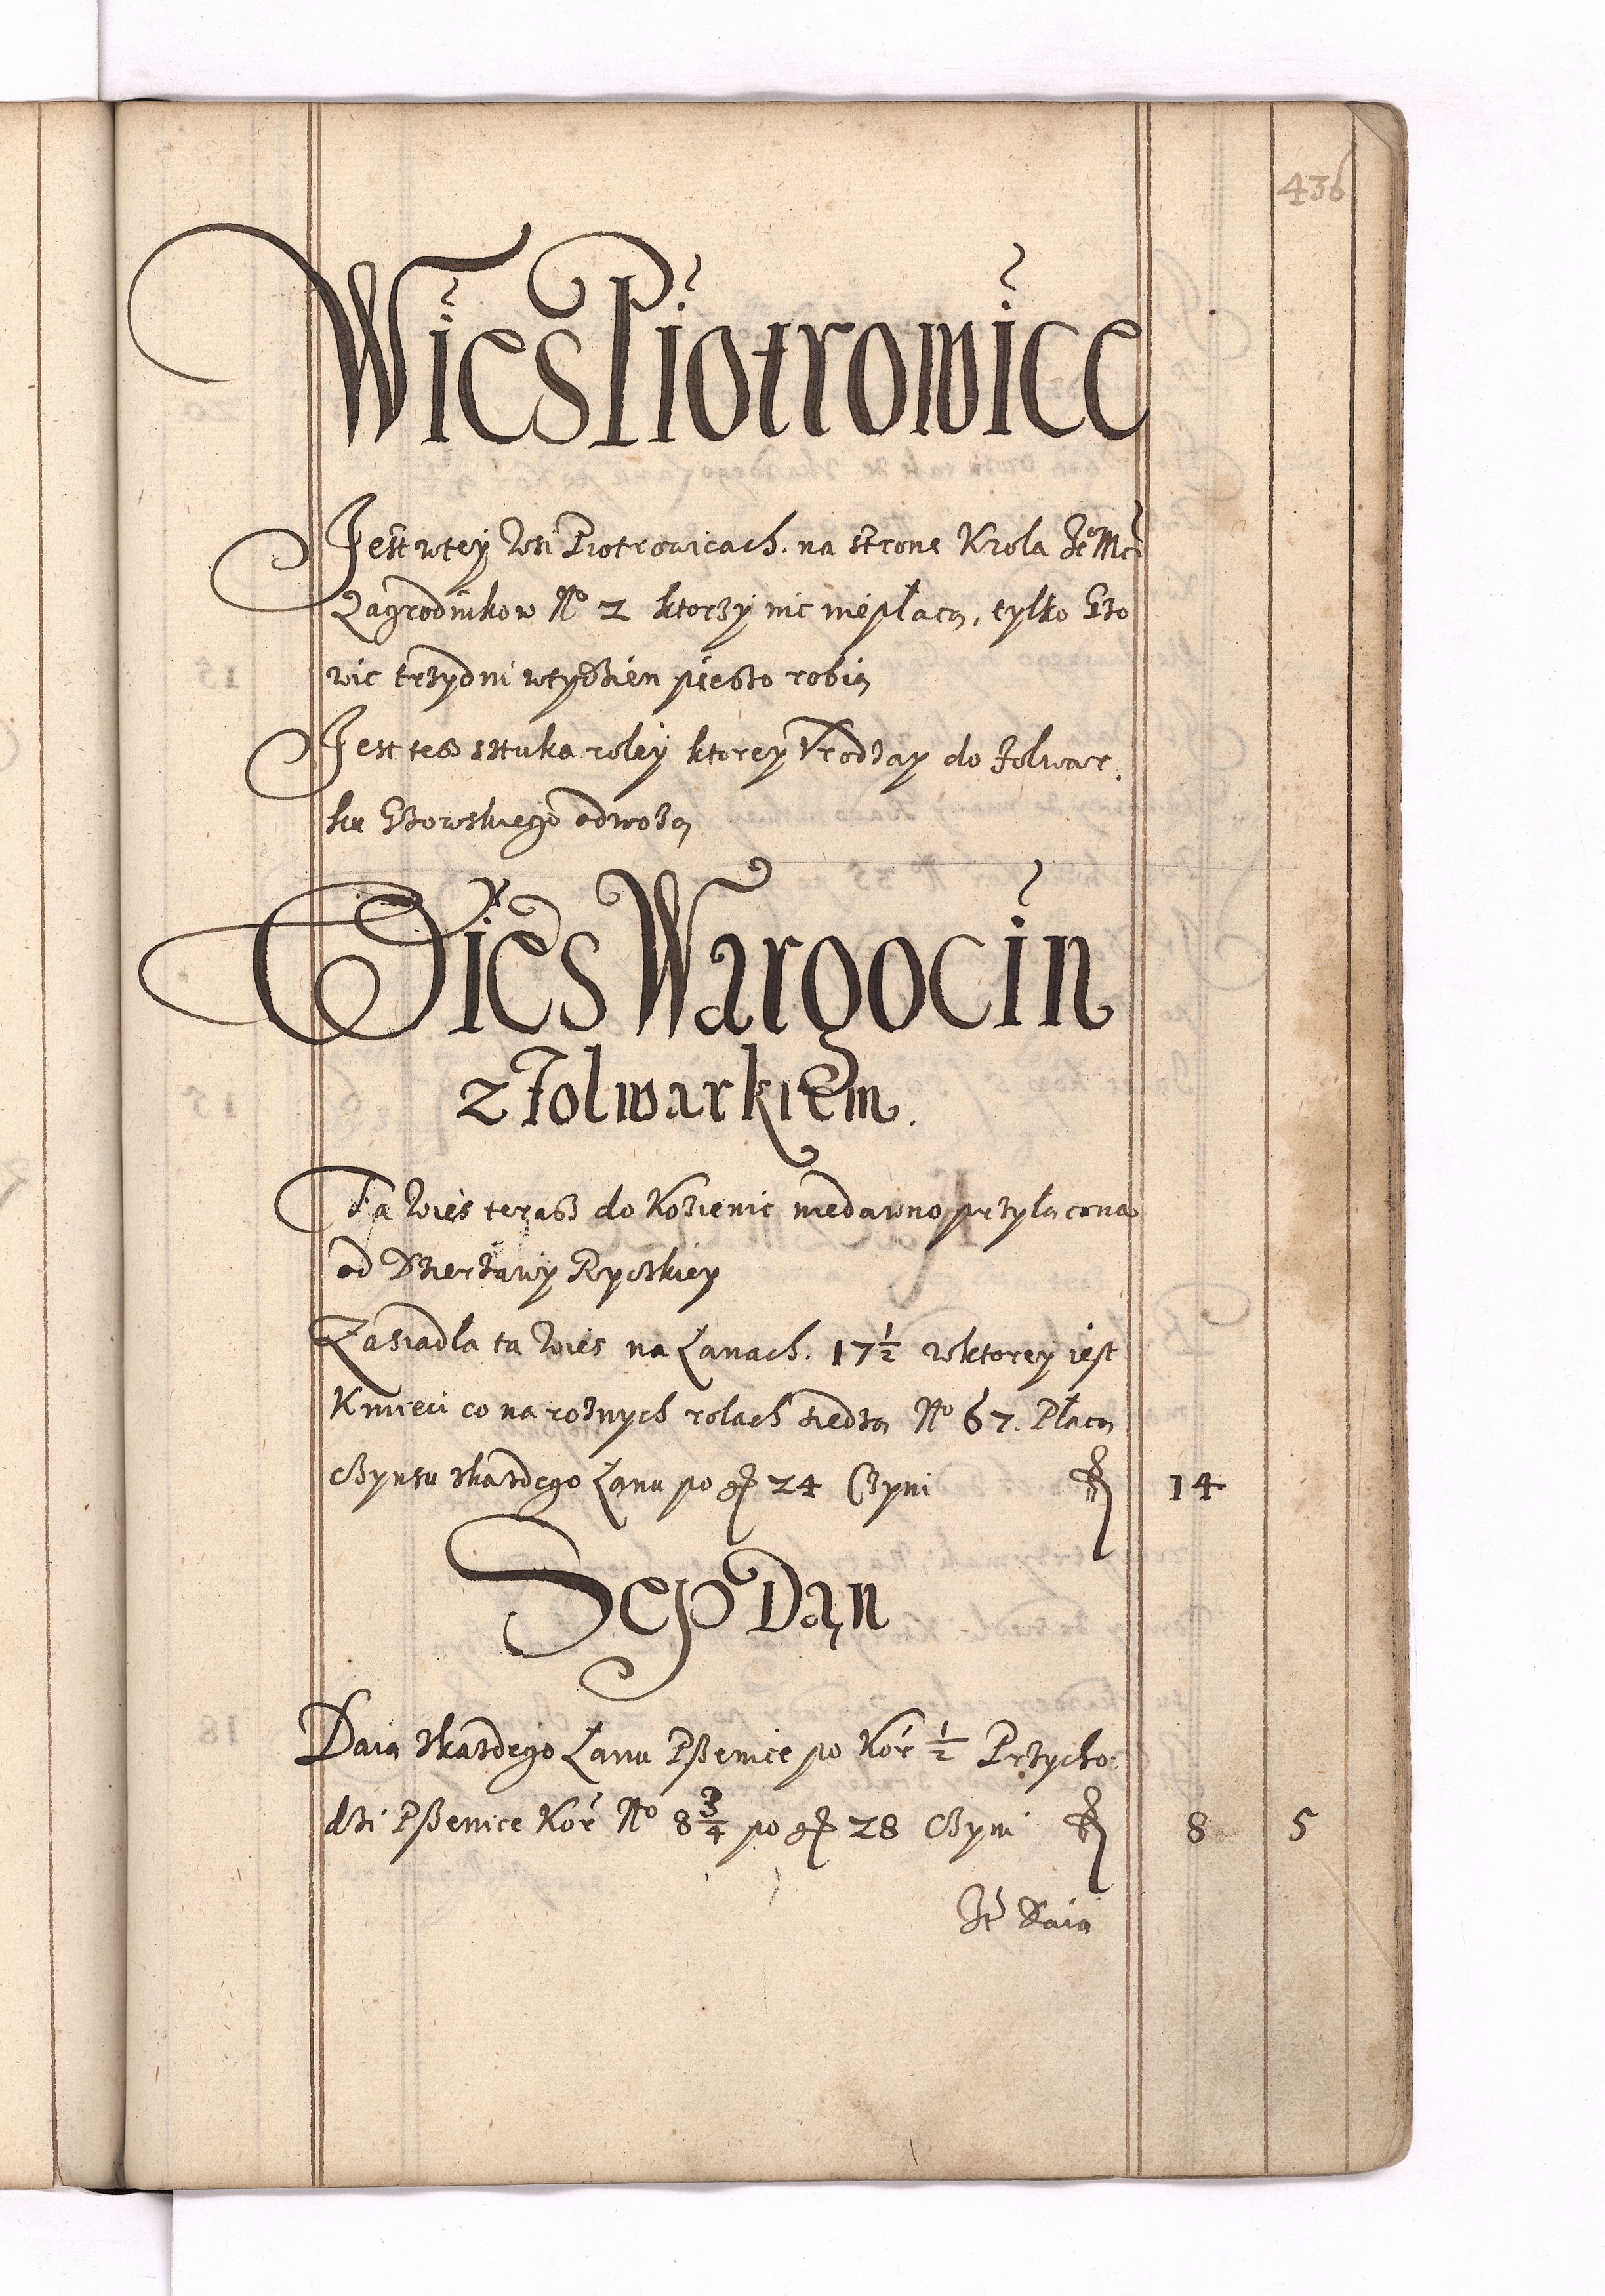 436
Wies Piotrowice
Jest wtey Wsi Piotrowicach. na strone Krola JeMci
Zagrodnikow No 2 ktorzy nic niepłacą, tylko Gzo
wic trzy dni wtydzien pieszo robią
Jest tesz sztuka roley ktorey Vrodzay do Folwar
ku Gzowskiego odwożą
Wies Wargocin
z Folwarkiem.
Ta Wies terasz do Kozienic niedawno przyłącona
od Dzierżawy Ryczkiey
Zasiadła ta Wies na Łanach. 17½ wktorey iest
Kmieci co na rożnych rolach siedzą No 67. Płacą
Czynszu zkazdego Łanu po g 24 Czyni f 14
Sep Dan
Daią zkazdego Łanu Pszenice po Kor ½ Przycho:
dzi Pszenice Kor No 8¾ po g 28 Czyni f 8 5
It Daią